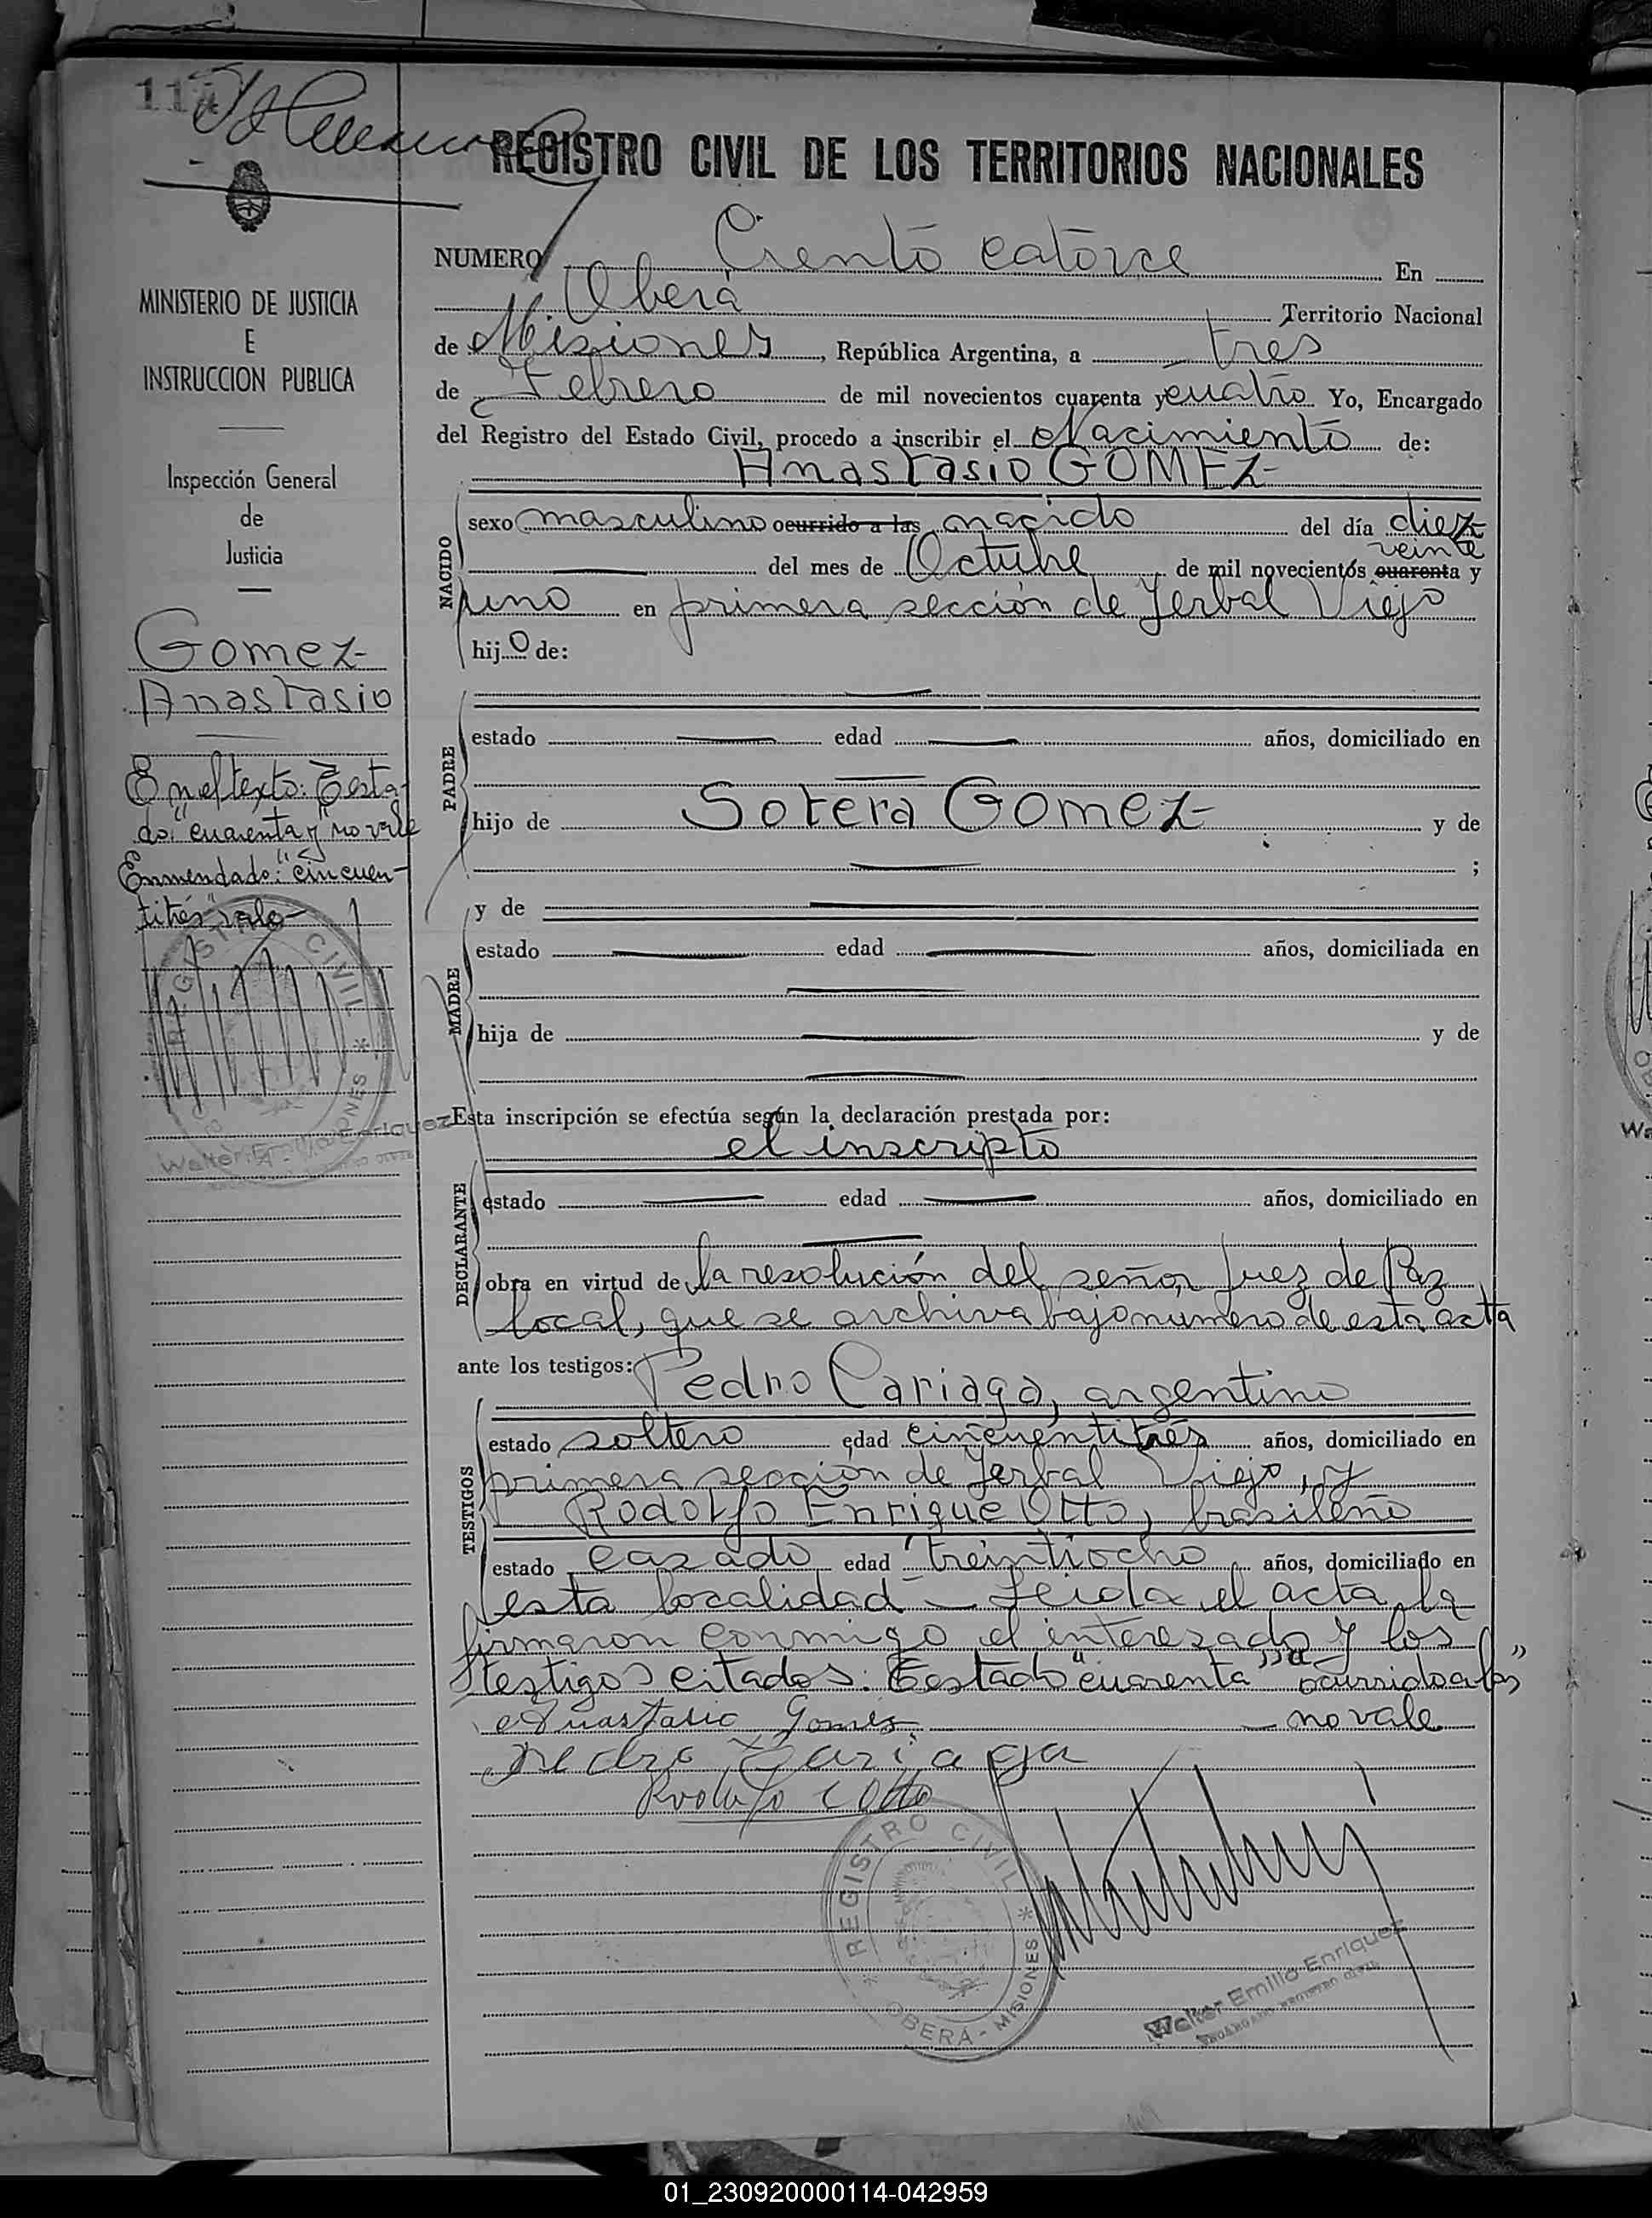 114
REGISTRO CIVIL DE LOS TERRITORIOS NACIONALES
MINISTERIO DE JUSTICIA
E
INSTRUCCION PUBLICA
Inspección General
de
Justicia
Gomez
Anastasio
En el texto: Testa-
do: "cuarenta y" no vale
Enmendado: "cincuen-
titrés" vale
REGISTRO CIVIL
MISIONES
Walter Emilio Enriquez
NUMERO Ciento catorce En
Oberá Territorio Nacional
de Misiones, República Argentina, a tres
de Febrero de mil novecientos cuarenta y cuatro Yo, Encargado
del Registro del Estado Civil, procedo a inscribir el Nacimiento de:
Anastasio GOMEZ
NACIDO
sexo masculino ocurrido a las nacido del día diez
veinte
del mes de Octubre de mil novecientos cuarenta y
uno en primera sección de Yerbal Viejo
hijo de:
PADRE
estado edad años, domiciliado en
hijo de Sotera Gomez y de
;
y de
MADRE
estado edad años, domiciliada en
hija de y de
Esta inscripción se efectúa según la declaración prestada por:
el inscripto
DECLARANTE
estado edad años, domiciliado en
obra en virtud de la resolución del señor Juez de Paz
local, que se archiva bajo numero de esta acta
ante los testigos: Pedro Cariaga, argentino
TESTIGOS
estado soltero edad cincuentitrés años, domiciliado en
primera sección de Yerbal Viejo, y
Rodolfo Enrique Otto, brasileño
estado casado edad treintiocho años, domiciliado en
esta localidad — Leida el acta la
firmaron conmigo el interesado y los
testigos citados. Testado "cuarenta" "ocurrido a las"
Anastasio Gomes. — no vale
Pedro Cariaga
Rodolfo E Otto
REGISTRO CIVIL
OBERÁ - MISIONES
Walter Emilio Enriquez
ENCARGADO REGISTRO CIVIL
01_230920000114-042959